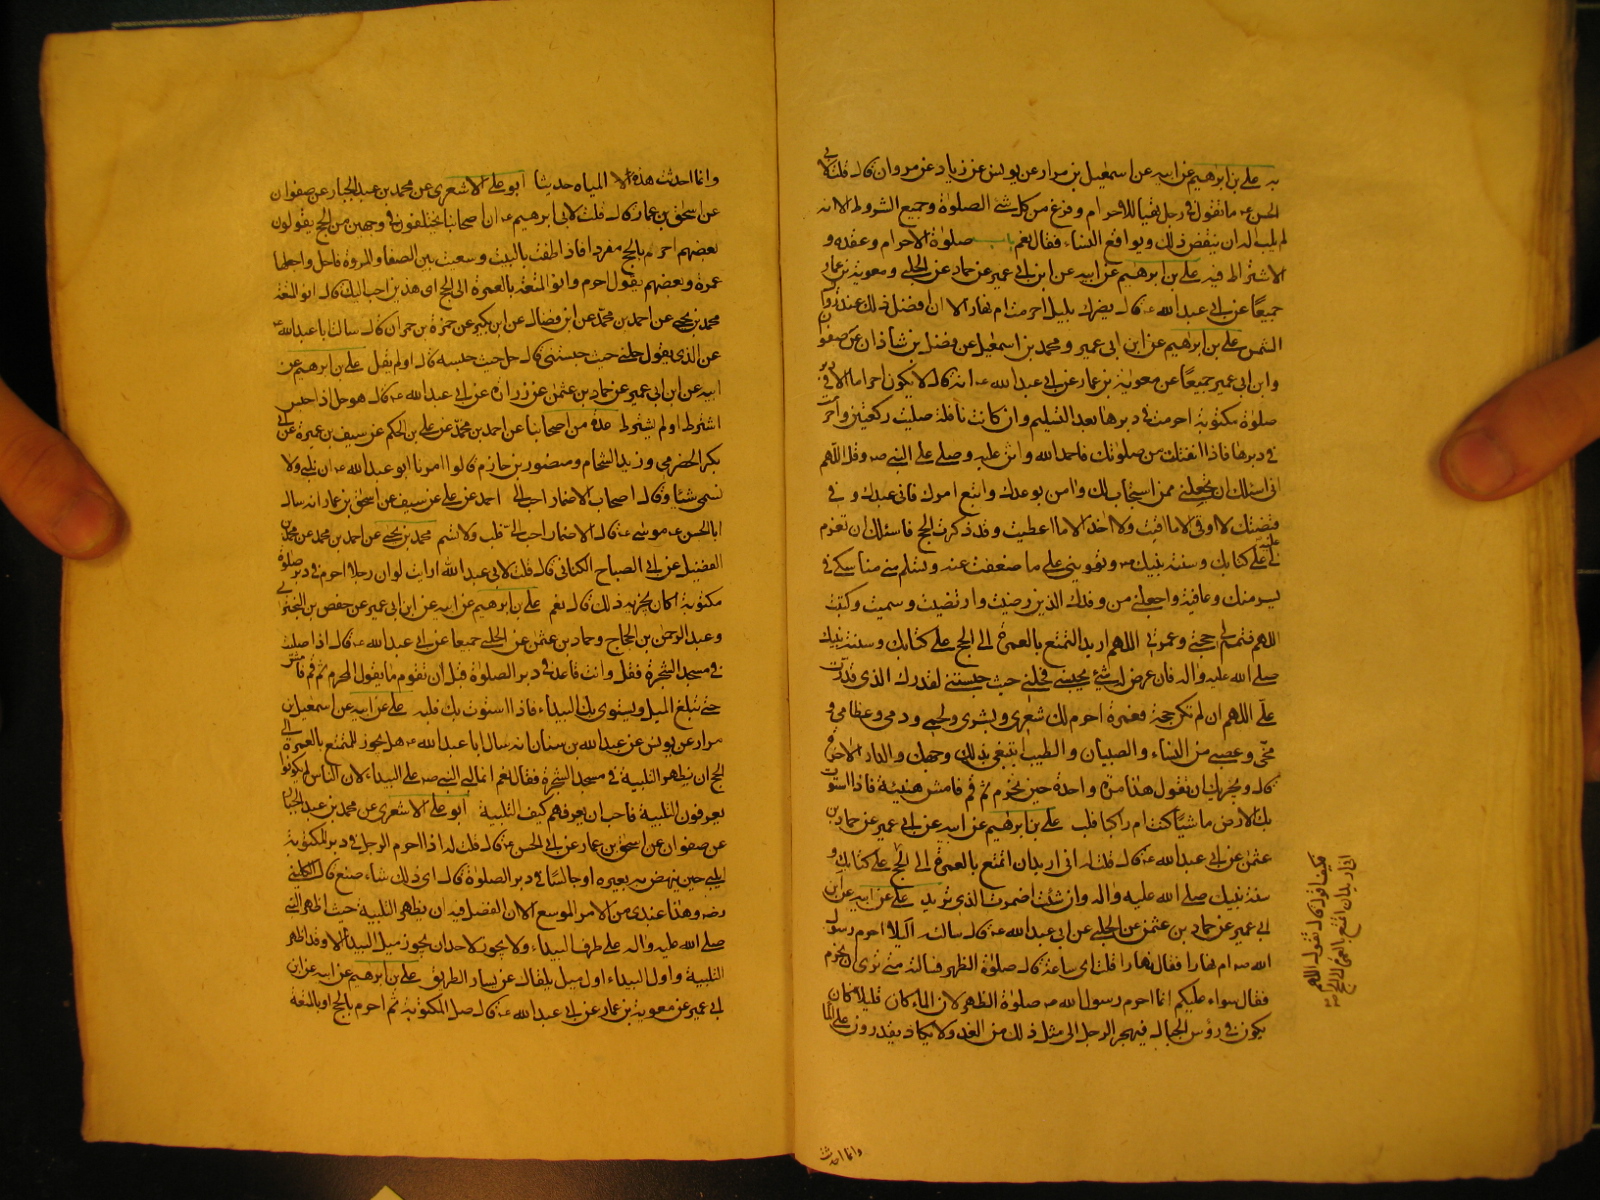 به علي بن ابرهيم عن ابيه عن اسمعيل بن مرار عن يونس عن زياد بن مروان قال قلت لابي
الحسن عه ما تقول في رجل تهيأ للاحرام وفرغ من كل شئ الصلوة وجميع الشروط الا انه
لم يلب اله ان ينقض ذلك ويواقع النساء فقال نعم باب صلوة الاحرام وعقده و
الاشتراط فيه علي بن ابرهيم عن ابيه عن ابن ابي عمير عن حماد عن الحلبي ومعوية بن عمار
جميعا عن ابي عبد الله عه قال لا يضرك بليل احرمت ام نهار الا ان افضل ذلك عند زوال
الشمس علي بن ابرهيم عن ابن ابي عمير ومحمد بن اسمعيل عن فضل بن شاذان عن صفوان
وابن ابي عمير جميعا عن معوية بن عمار عن ابي عبد الله عه انه قال لا يكون احراما الا في دبر
صلوة مكتوبة احرمت في دبرها بعد التسليم وان كانت نافلة صليت ركعتين واحرمت
في دبرها فاذا انفتلت من صلوتك فاحمد الله واثن عليه وصلى على النبي صه وقل اللهم
اني اسئلك ان تجعلني ممن استجاب لك وامن بوعدك واتبع امرك فاني عبدك وفي
قبضتك لا اوقى الا ما اوقيت ولا اخذ الا ما اعطيت وقد ذكرت الحج فاسئلك ان تعزم
لي عليه على كتابك وسنة نبيك صه وتقويني على ما ضعفت عنه وتسلم مني مناسكي في
يسر منك وعافية واجعلني من وفدك الذين رضيت وارتضيت وسميت وكتبت
اللهم فتمم لي حجتي وعمرتي اللهم اني اريد التمتع بالعمرة الى الحج على كتابك وسنة نبيك
صلى الله عليه واله فان عرض لي شئ يحبسني فحلني حيث حبستني لقدرك الذي قدرت
علي اللهم ان لم تكن حجة فعمرة احرم لك شعري وبشري ولحمي ودمي وعظامي و
مخي وعصبي من النساء والصبيان والطيب ابتغي بذلك وجهك والدار الاخرة
قال ويجزيك ان تقول هذا مرة واحدة حين تحرم ثم قم فامش هنيئة فاذا استوت
بك الارض ماشيا كنت ام راكبا فلب علي بن ابرهيم عن ابيه عن ابي عمير عن حماد بن
عثمن عن ابي عبد الله عه قال قلت له اني اريد ان اتمتع بالعمرة الى الحج على كتابك و
سنة نبيك صلى الله عليه واله وان شئت اضمرت الذي تريد علي عن ابيه عن ابن
ابي عمير عن حماد بن عثمن عن الحلبي عن ابي عبد الله عه قال سالته اليلا احرم رسول
الله صه ام نهارا فقال نهارا قلت اي ساعة قال صلوة الظهر فسالته متى ترى ان نحرم
فقال سواء عليكم انما احرم رسول الله صه صلوة الظهر لان الماء كان قليلا كان
يكون في رؤس الجبال فيهجر الرجل الى مثل ذلك من الغد ولا يكاد يقدرون على الماء
فكيف اقول قال تقول اللهم
اني اريد ان اتمتع بالعمرة الى الحج
وانما احدثت
وانما احدثت هذه الا المياه حديثا ابو علي الاشعري عن محمد بن عبد الجبار عن صفوان
عن اسحق بن عمار قال قلت لابي ابرهيم عه ان اصحابنا يختلفون في وجهين من الحج يقولون
بعضهم احرم بالحج مفردا فاذا طفت بالبيت وسعيت بين الصفا والمروة فاحل واجعلها
عمرة وبعضهم يقول احرم وانو المتعة بالعمرة الى الحج اي هذين احب اليك قال انو المتعة
محمد بن يحيى عن احمد بن محمد عن ابن فضال عن ابن بكير عن حمزة بن حمران قال سالت ابا عبد الله عه
عن الذي يقول حلني حيث حبستني قال حل حيث حبسه قال اولم يقل علي بن ابرهيم عن
ابيه عن ابن ابي عمير عن حماد بن عثمن عن زرارة عن ابي عبد الله عه قال هو حل اذا حبس
اشترط او لم يشترط عدة من اصحابنا عن احمد بن محمد عن علي بن الحكم عن سيف بن عميرة عن ابي
بكر الحضرمي وزيد الشحام ومنصور بن حازم قالوا امرنا ابو عبد الله عه ان نلبي ولا
نسمي شئا وقال اصحاب الاضمار احب الي احمد عن علي عن سيف عن اسحق بن عمار انه سال
ابا الحسن عه موسى عه قال الاضمار احب الي فلب ولا تسم محمد بن يحيى عن احمد بن محمد عن محمد بن
الفضيل عن ابي الصباح الكناني قال قلت لابي عبد الله ارايت لو ان رجلا احرم في دبر صلوة
مكتوبة اكان يجزيه ذلك قال نعم علي بن ابرهيم عن ابيه عن ابن ابي عمير عن حفص بن البختري
وعبد الرحمن بن الحجاج وحماد بن عثمن عن الحلبي جميعا عن ابي عبد الله عه قال اذا صليت
في مسجد الشجرة فقل وانت قاعد في دبر الصلوة قبل ان تقوم ما يقول المحرم ثم قم فامش
حتى تبلغ الميل وتستوي بك البيداء فاذا استوت بك فلبه علي عن ابيه عن اسمعيل بن
مرار عن يونس عن عبد الله بن سنان انه سال ابا عبد الله عه هل يجوز للتمتع بالعمرة الى
الحج ان يظهر التلبية في مسجد الشجرة فقال نعم انما لبى النبي صه على البيداء لان الناس لم يكونوا
يعرفون التلبية فاحب ان يعرفهم كيف التلبية ابو علي الاشعري عن محمد بن عبد الجبار
عن صفوان عن اسحق بن عمار عن ابي الحسن عه قال قلت له اذا احرم الرجل في دبر المكتوبة
ايلبي حين ينهض به بعيره او جالسا في دبر الصلوة قال اي ذلك شاء صنع قال الكليني
رضه وهذا عندي من الامر الموسع الا ان الفضل فيه ان يظهر التلبية حيث اظهر النبي
صلى الله عليه واله على طرف البيداء ولا يجوز لاحد ان يجوز ميل البيداء الا وقد اظهر
التلبية واول البيداء اول ميل يلقاك عن يسار الطريق علي بن ابرهيم عن ابيه عن ابن
ابي عمير عن معوية بن عمار عن ابي عبد الله عه قال صل المكتوبة ثم احرم بالحج او بالمتعة